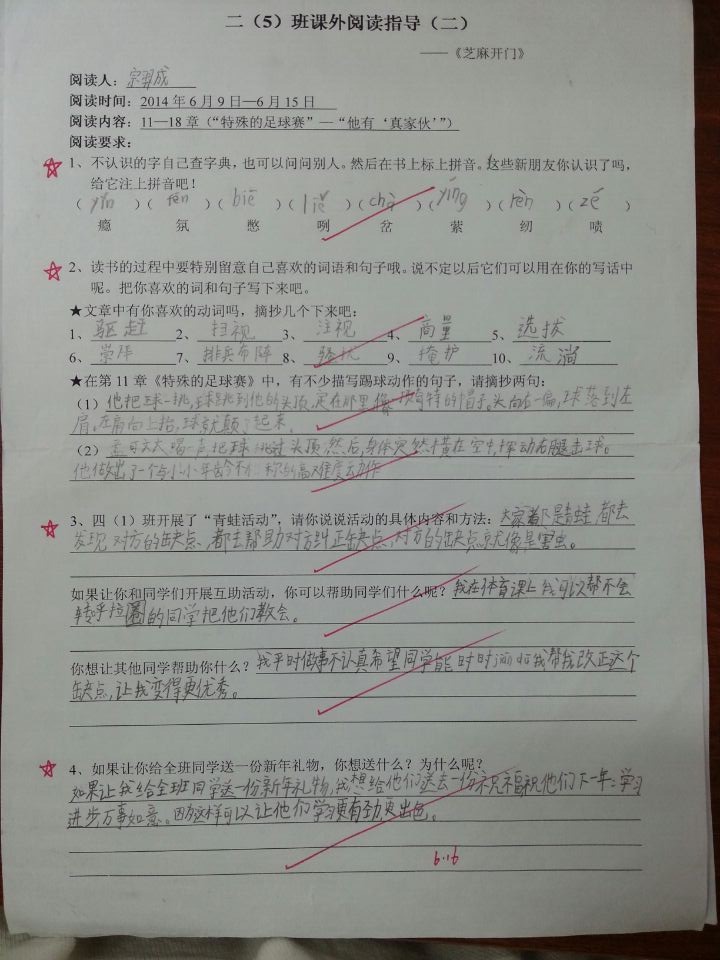 二（5）班课外阅读指导（二）
——《芝麻开门》
阅读人：宗羿成
阅读时间：2014年6月9日—6月15日
阅读内容：11—18章（“特殊的足球赛”—“他有‘真家伙’”）
阅读要求：
1、不认识的字自己查字典，也可以问问别人。然后在书上标上拼音。这些新朋友你认识了吗，
给它注上拼音吧！
（yǐn）（fēn）（biē）（liě）（chà）（yíng）（rèn）（zé）
瘾 氛 憋 咧 岔 萦 纫 啧
2、读书的过程中要特别留意自己喜欢的词语和句子哦。说不定以后它们可以用在你的写话中
呢。把你喜欢的词和句写下来吧。
★文章中有你喜欢的动词吗，摘抄几个下来吧：
1、驱赶 2、扫视 3、注视 4、商量 5、选拔
6、崇拜 7、排兵布阵 8、骚扰 9、掩护 10、流淌
★在第11章《特殊的足球赛》中，有不少描写踢球动作的句子，请摘抄两句：
（1）他把球一挑，球跳到他的头顶，定在那里像顶奇特的帽子。头向右一偏，球落到左
肩，左肩向上抬，球就颠了起来。
（2）孟可文大喝一声，把球挑过头顶，然后，身体突然横在空中，挥动右腿击球。
他做出了一个与小小年龄不相称的高难度动作
3、四（1）班开展了“青蛙活动”，请你说说活动的具体内容和方法：大家都是青蛙，都去
发现对方的缺点，都去帮助对方纠正缺点，对方的缺点就像是害虫。
如果让你和同学们开展互助活动，你可以帮助同学们什么呢？我在体育课上我可以帮不会
转呼拉圈的同学把他们教会。
你想让其他同学帮助你什么？我平时做事不认真希望同学能时时 帮我改正这个
缺点，让我变得更优秀。
4、如果让你给全班同学送一份新年礼物，你想送什么？为什么呢？
如果让我给全班同学送一份新年礼物，我想给他们送去一份祝福祝他们下一年：学习
进步万事如意。因为这样可以让他们学习更有劲，更出色。
6.16